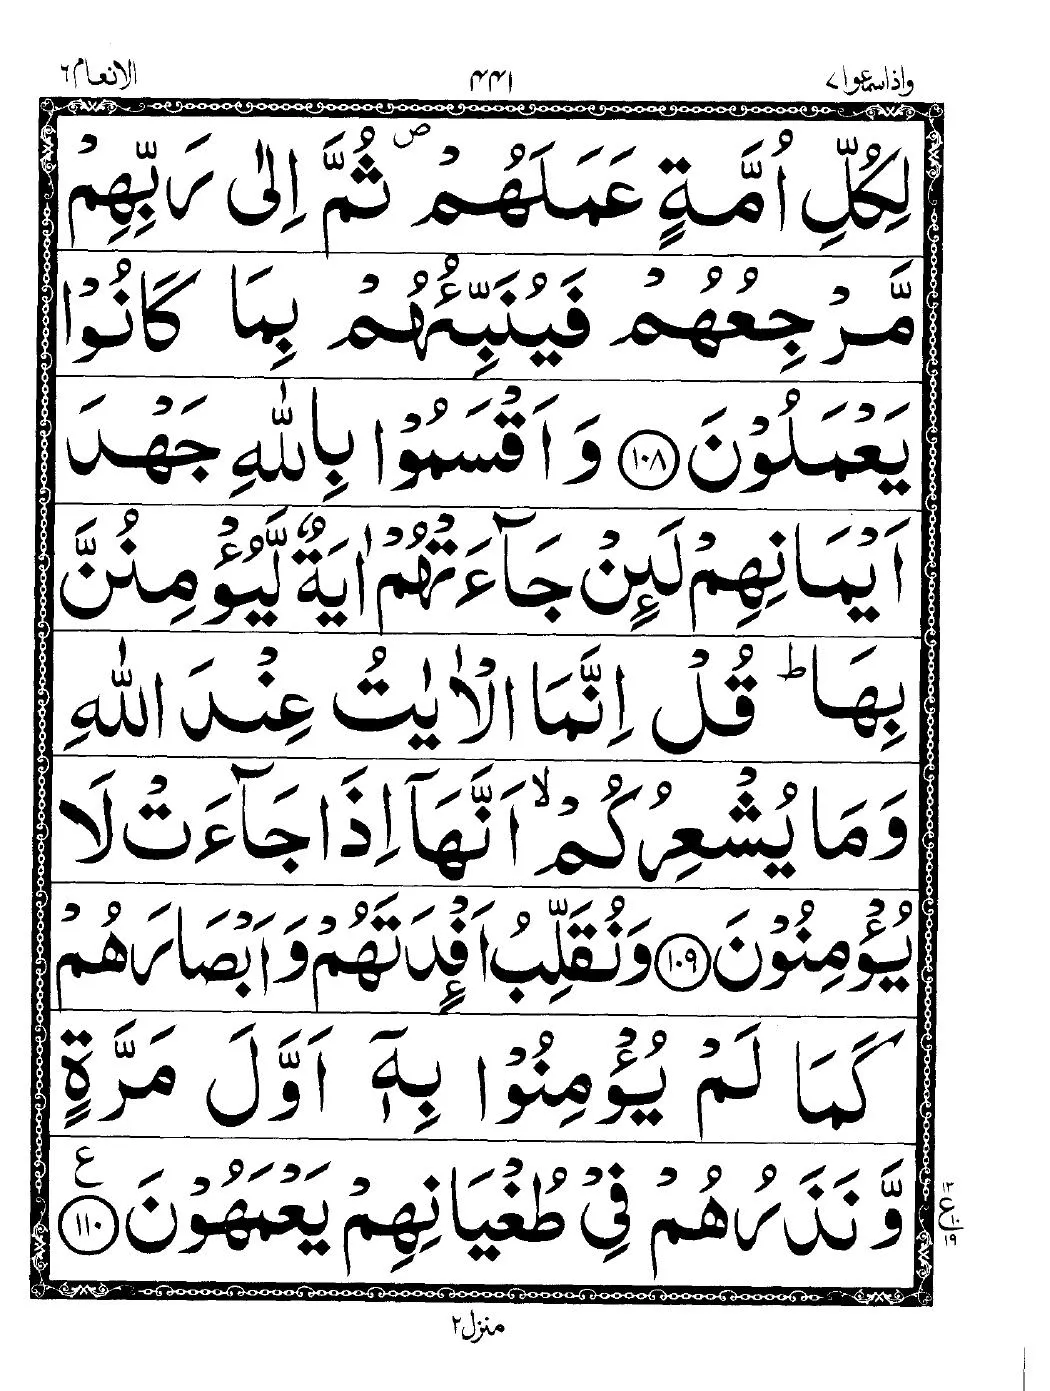 واذاسمعوا ٧
٤٤١
الانعام ٦
لِكُلِّ اُمَّةٍ عَمَلَهُمْ ۪ ثُمَّ اِلٰى رَبِّهِمْ
مَّرْجِعُهُمْ فَيُنَبِّئُهُمْ بِمَا كَانُوْا
يَعْمَلُوْنَ ﴿١٠٨﴾ وَاَقْسَمُوْا بِاللّٰهِ جَهْدَ
اَيْمَانِهِمْ لَىِٕنْ جَآءَتْهُمْ اٰيَةٌ لَّيُؤْمِنُنَّ
بِهَا ؕ قُلْ اِنَّمَا الْاٰيٰتُ عِنْدَ اللّٰهِ
وَمَا يُشْعِرُكُمْ ۙ اَنَّهَاۤ اِذَا جَآءَتْ لَا
يُؤْمِنُوْنَ ﴿١٠٩﴾ وَنُقَلِّبُ اَفْـِٕدَتَهُمْ وَاَبْصَارَهُمْ
كَمَا لَمْ يُؤْمِنُوْا بِهٖۤ اَوَّلَ مَرَّةٍ
وَّنَذَرُهُمْ فِيْ طُغْيَانِهِمْ يَعْمَهُوْنَ ﴿١١٠﴾ ع
١٣
ع ١٠
١٩
منزل ٢